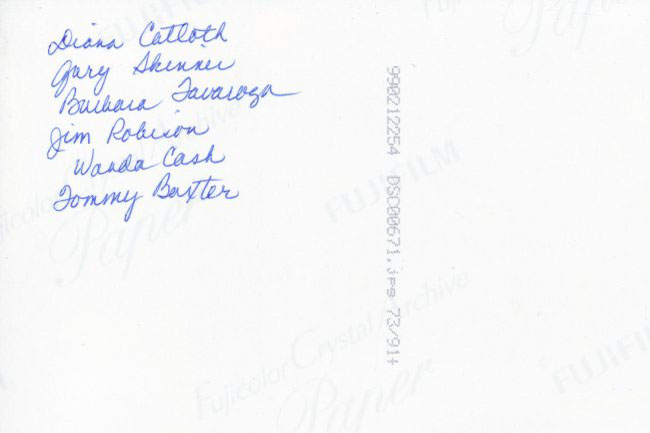 Diana Catloth
Gary Skinner
Barbara Tavaroza
Jim Robison
Wanda Cash
Tommy Baxter
990212254 DSC00671.jpg 73/91+
FUJIFILM
Fujicolor Crystal Archive
Paper
Fujicolor Crystal Archive
Paper
FUJIFILM